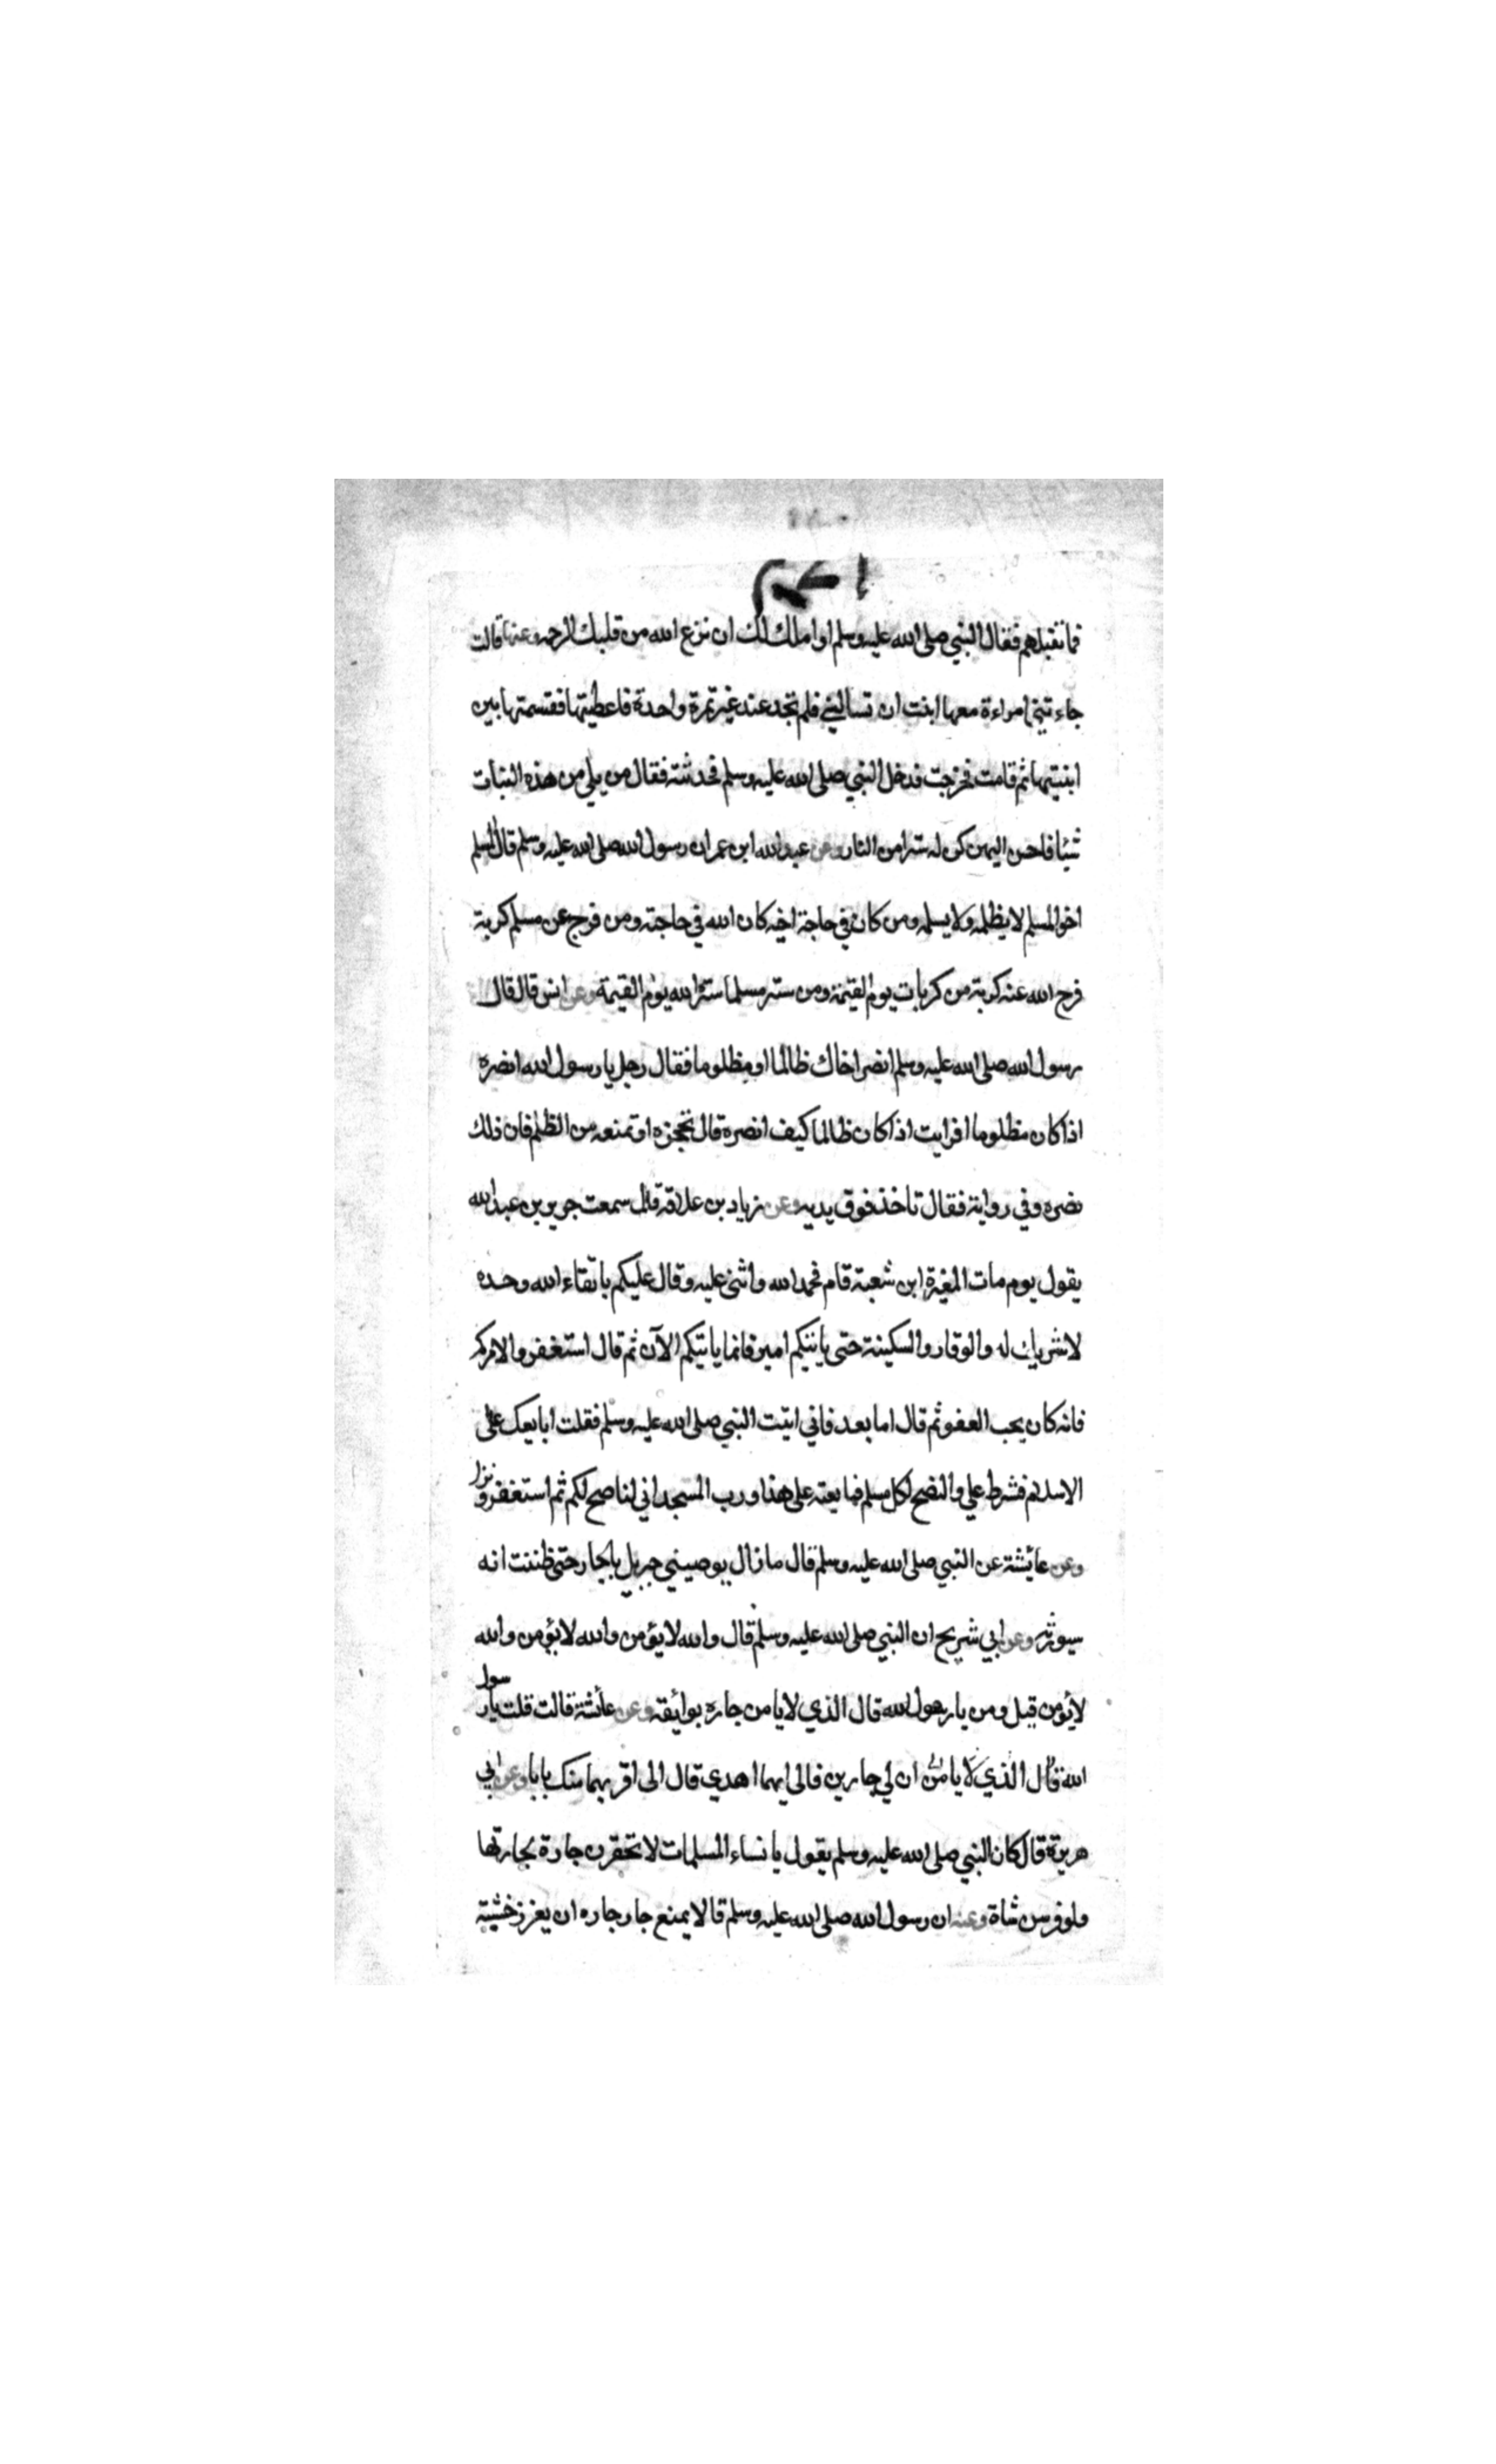 فما نقبلهم فقال النبي صلى الله عليه وسلم او املك لك ان نزع الله من قلبك الرحمة وعنها قالت
جاءتني امراءة معها ابنت ان تسالني فلم تجد عند غير تمرة واحدة فاعطيتها فقسمتها بين
ابنيتها ثم قامت فخرجت فدخل النبي صلى الله عليه وسلم فحدثته فقال من يلي من هذه البنات
شيئا فاحسن اليهن كن له سترا من النار وعن عبد الله ابن عمر ان رسول الله صلى الله عليه وسلم قال المسلم
اخو المسلم لا يظلمه ولا يسلمه ومن كان في حاجة اخيه كان الله في حاجته ومن فرج عن مسلم كربة
فرج الله عنه كربة من كربات يوم القيمة ومن ستر مسلما ستره الله يوم القيمة وعن انس قال قال
رسول الله صلى الله عليه وسلم انصر اخاك ظالما او مظلوما فقال رجل يا رسول الله انصره
اذا كان مظلوما افرايت اذا كان ظالما كيف انصره قال تحجزه او تمنعه من الظلم فان ذلك
نصره وفي رواية فقال تاخذ فوق يديه وعن زياد بن علاقة قال سمعت جرير بن عبد الله
يقول يوم مات المغيرة ابن شعبة قام فحمد الله واثنى عليه وقال عليكم باتقاء الله وحده
لا شريك له والوقار والسكينة حتى ياتيكم امير فانما ياتيكم الآن ثم قال استغفروا لاميركم
فانه كان يحب العفو ثم قال اما بعد فاني اتيت النبي صلى الله عليه وسلم فقلت ابايعك على
الاسلام فشرط علي والنصح لكل مسلم فبايعته على هذا ورب المسجد اني لناصح لكم ثم استغفر ونزل
وعن عائشة عن النبي صلى الله عليه وسلم قال ما زال يوصيني جبريل بالجار حتى ظننت انه
سيورثه وعن ابي شريح ان النبي صلى الله عليه وسلم قال والله لا يؤمن والله لا يؤمن والله
لا يؤمن قيل ومن يا رسول الله قال الذي لا يامن جاره بوائقه وعن عائشة قالت قلت يا رسول
الله قال الذي لا يامن ان لي جارين فالى ايهما اهدي قال الى اقربهما منك بابا وعن ابي
هريرة قال كان النبي صلى الله عليه وسلم يقول يا نساء المسلمات لا تحقرن جارة لجارتها
ولو فرسن شاة وعنه ان رسول الله صلى الله عليه وسلم قا لا يمنع جار جاره ان يغرز خشبة